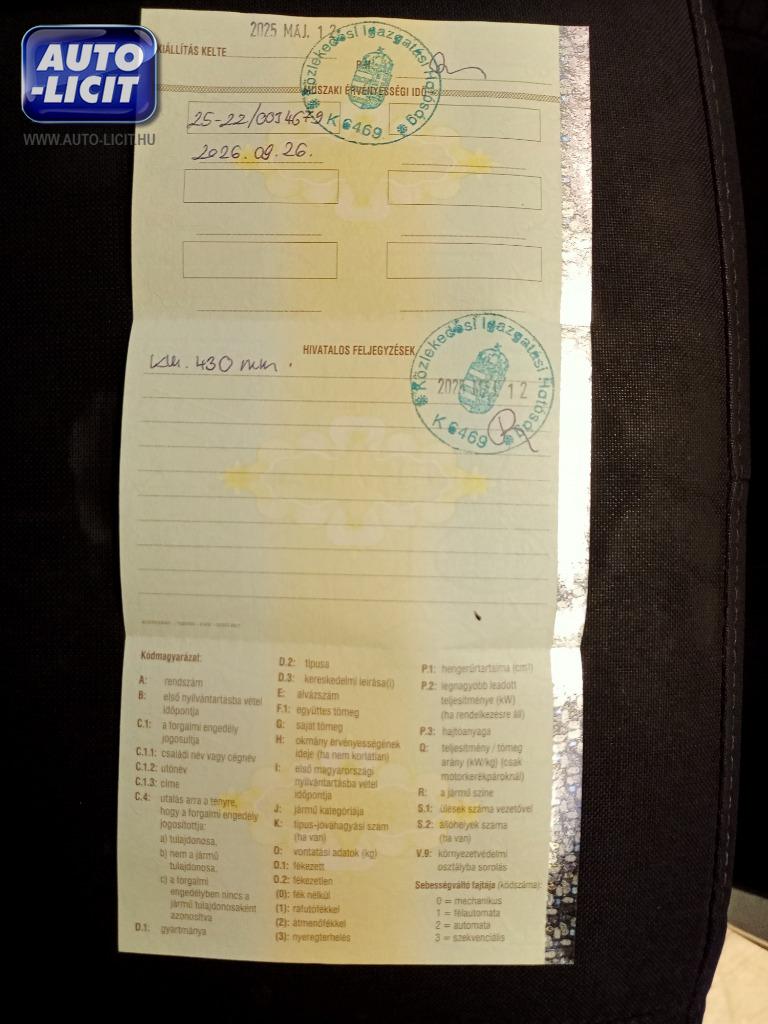 AUTO
-LICIT
WWW.AUTO-LICIT.HU
2025 MÁJ. 12.
KIÁLLÍTÁS KELTE
P.H.
Közlekedési Igazgatási Hatóság
K 6469
MŰSZAKI ÉRVÉNYESSÉGI IDŐ
25-22/0014679
2026.09.26.
HIVATALOS FELJEGYZÉSEK
430 mm.
Közlekedési Igazgatási Hatóság
2025 MÁJ 12
K 6469
Kódmagyarázat:
A: rendszám
B: első nyilvántartásba vétel
időpontja
C.1: a forgalmi engedély
jogosultja
C.1.1: családi név vagy cégnév
C.1.2: utónév
C.1.3: címe
C.4: utalás arra a tényre,
hogy a forgalmi engedély
jogosítottja:
a) tulajdonosa,
b) nem a jármű
tulajdonosa,
c) a forgalmi
engedélyben nincs a
jármű tulajdonosaként
azonosítva
D.1: gyártmánya
D.2: típusa
D.3: kereskedelmi leírása(i)
E: alvázszám
F.1: együttes tömeg
G: saját tömeg
H: okmány érvényességének
ideje (ha nem korlátlan)
I: első magyarországi
nyilvántartásba vétel
időpontja
J: jármű kategóriája
K: típus-jóváhagyási szám
(ha van)
O: vontatási adatok (kg)
O.1: fékezett
O.2: fékezetlen
(0): fék nélkül
(1): ráfutófékkel
(2): átmenőfékkel
(3): nyeregterhelés
P.1: hengerűrtartalma (cm³)
P.2: legnagyobb leadott
teljesítménye (kW)
(ha rendelkezésre áll)
P.3: hajtóanyaga
Q: teljesítmény / tömeg
arány (kW/kg) (csak
motorkerékpároknál)
R: a jármű színe
S.1: ülések száma vezetővel
S.2: állóhelyek száma
(ha van)
V.9: környezetvédelmi
osztályba sorolás
Sebességváltó fajtája (kódszáma):
0 = mechanikus
1 = félautomata
2 = automata
3 = szekvenciális